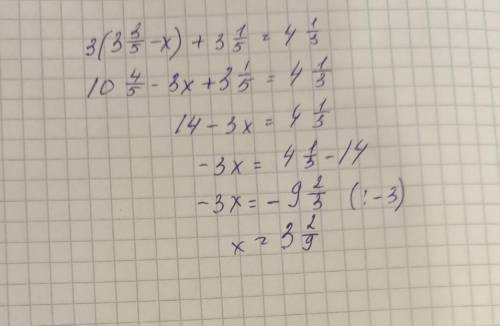 3(3 3/5 - x) + 3 1/5 = 4 1/3
10 4/5 - 3x + 3 1/5 = 4 1/3
14 - 3x = 4 1/3
-3x = 4 1/3 - 14
-3x = - 9 2/3 (: -3)
x = 3 2/9